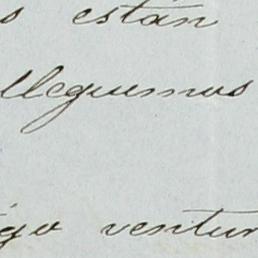 s están
lleguemos
igo ventur